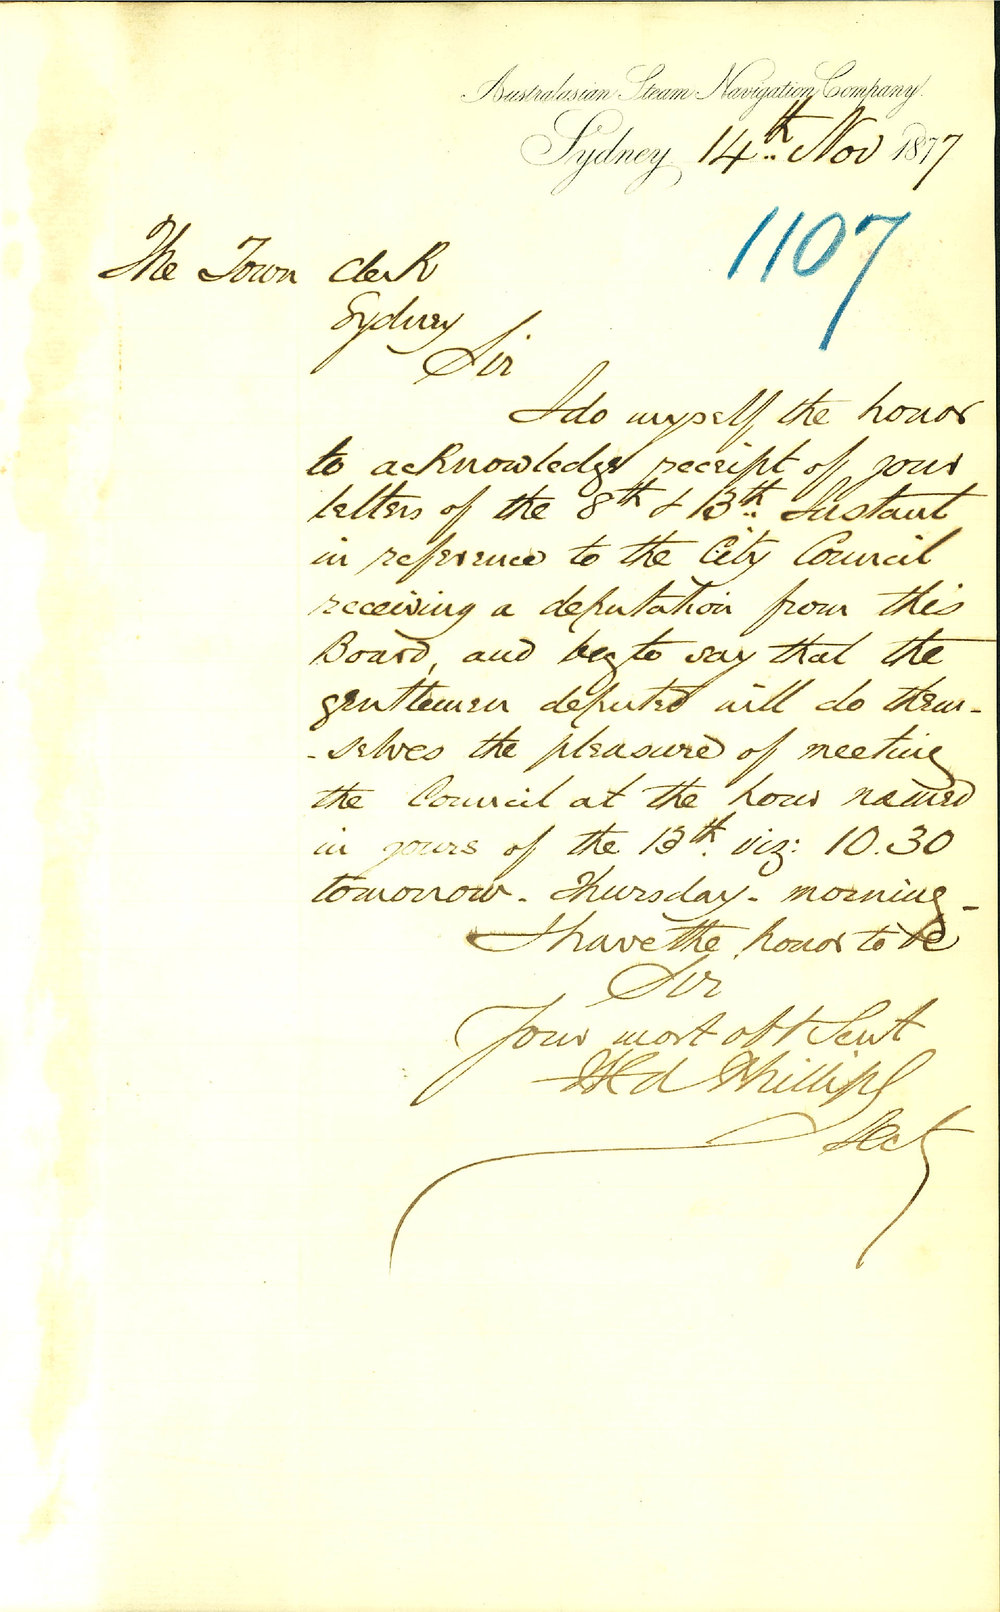 Australasian Steam Navigation Company.
Sydney 14th Nov 1877
1107
The Town Clerk
Sydney
Sir
I do myself the honor
to acknowledge receipt of your
letters of the 8th & 13th Instant
in reference to the City Council
receiving a deputation from this
Board, and beg to say that the
gentlemen deputed will do them-
-selves the pleasure of meeting
the Council at the hour named
in yours of the 13th. viz: 10.30
tomorrow - Thursday - morning -
I have the honor to be
Sir
Your most obt Servt
Phillips
Secy